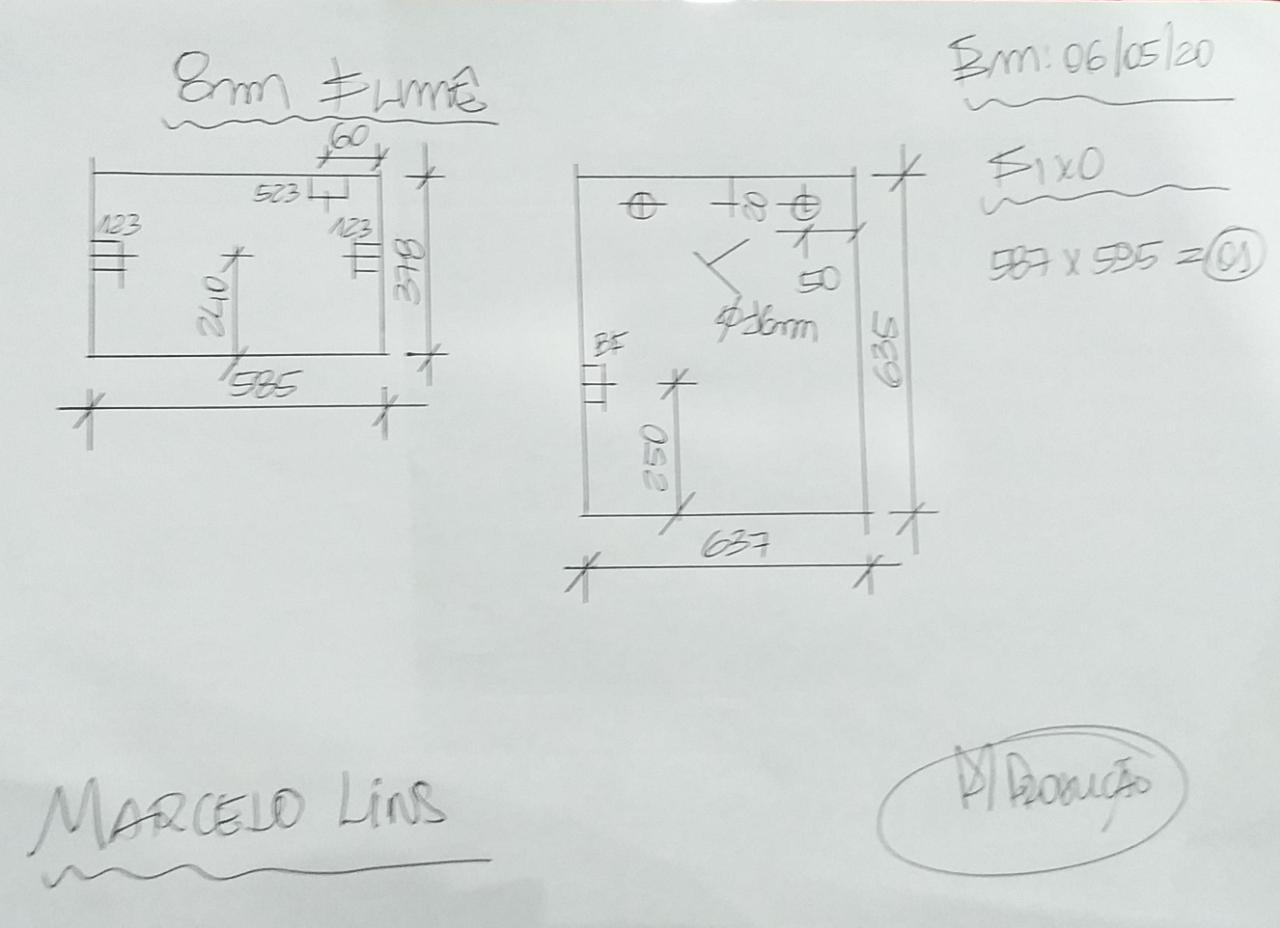 8mm FUMÊ
Em: 06/05/20
60
523
123
123
240
378
585
50
BF
250
635
637
FIXO
587 x 595 = 01
MARCELO LINS
P/ PRODUÇÃO